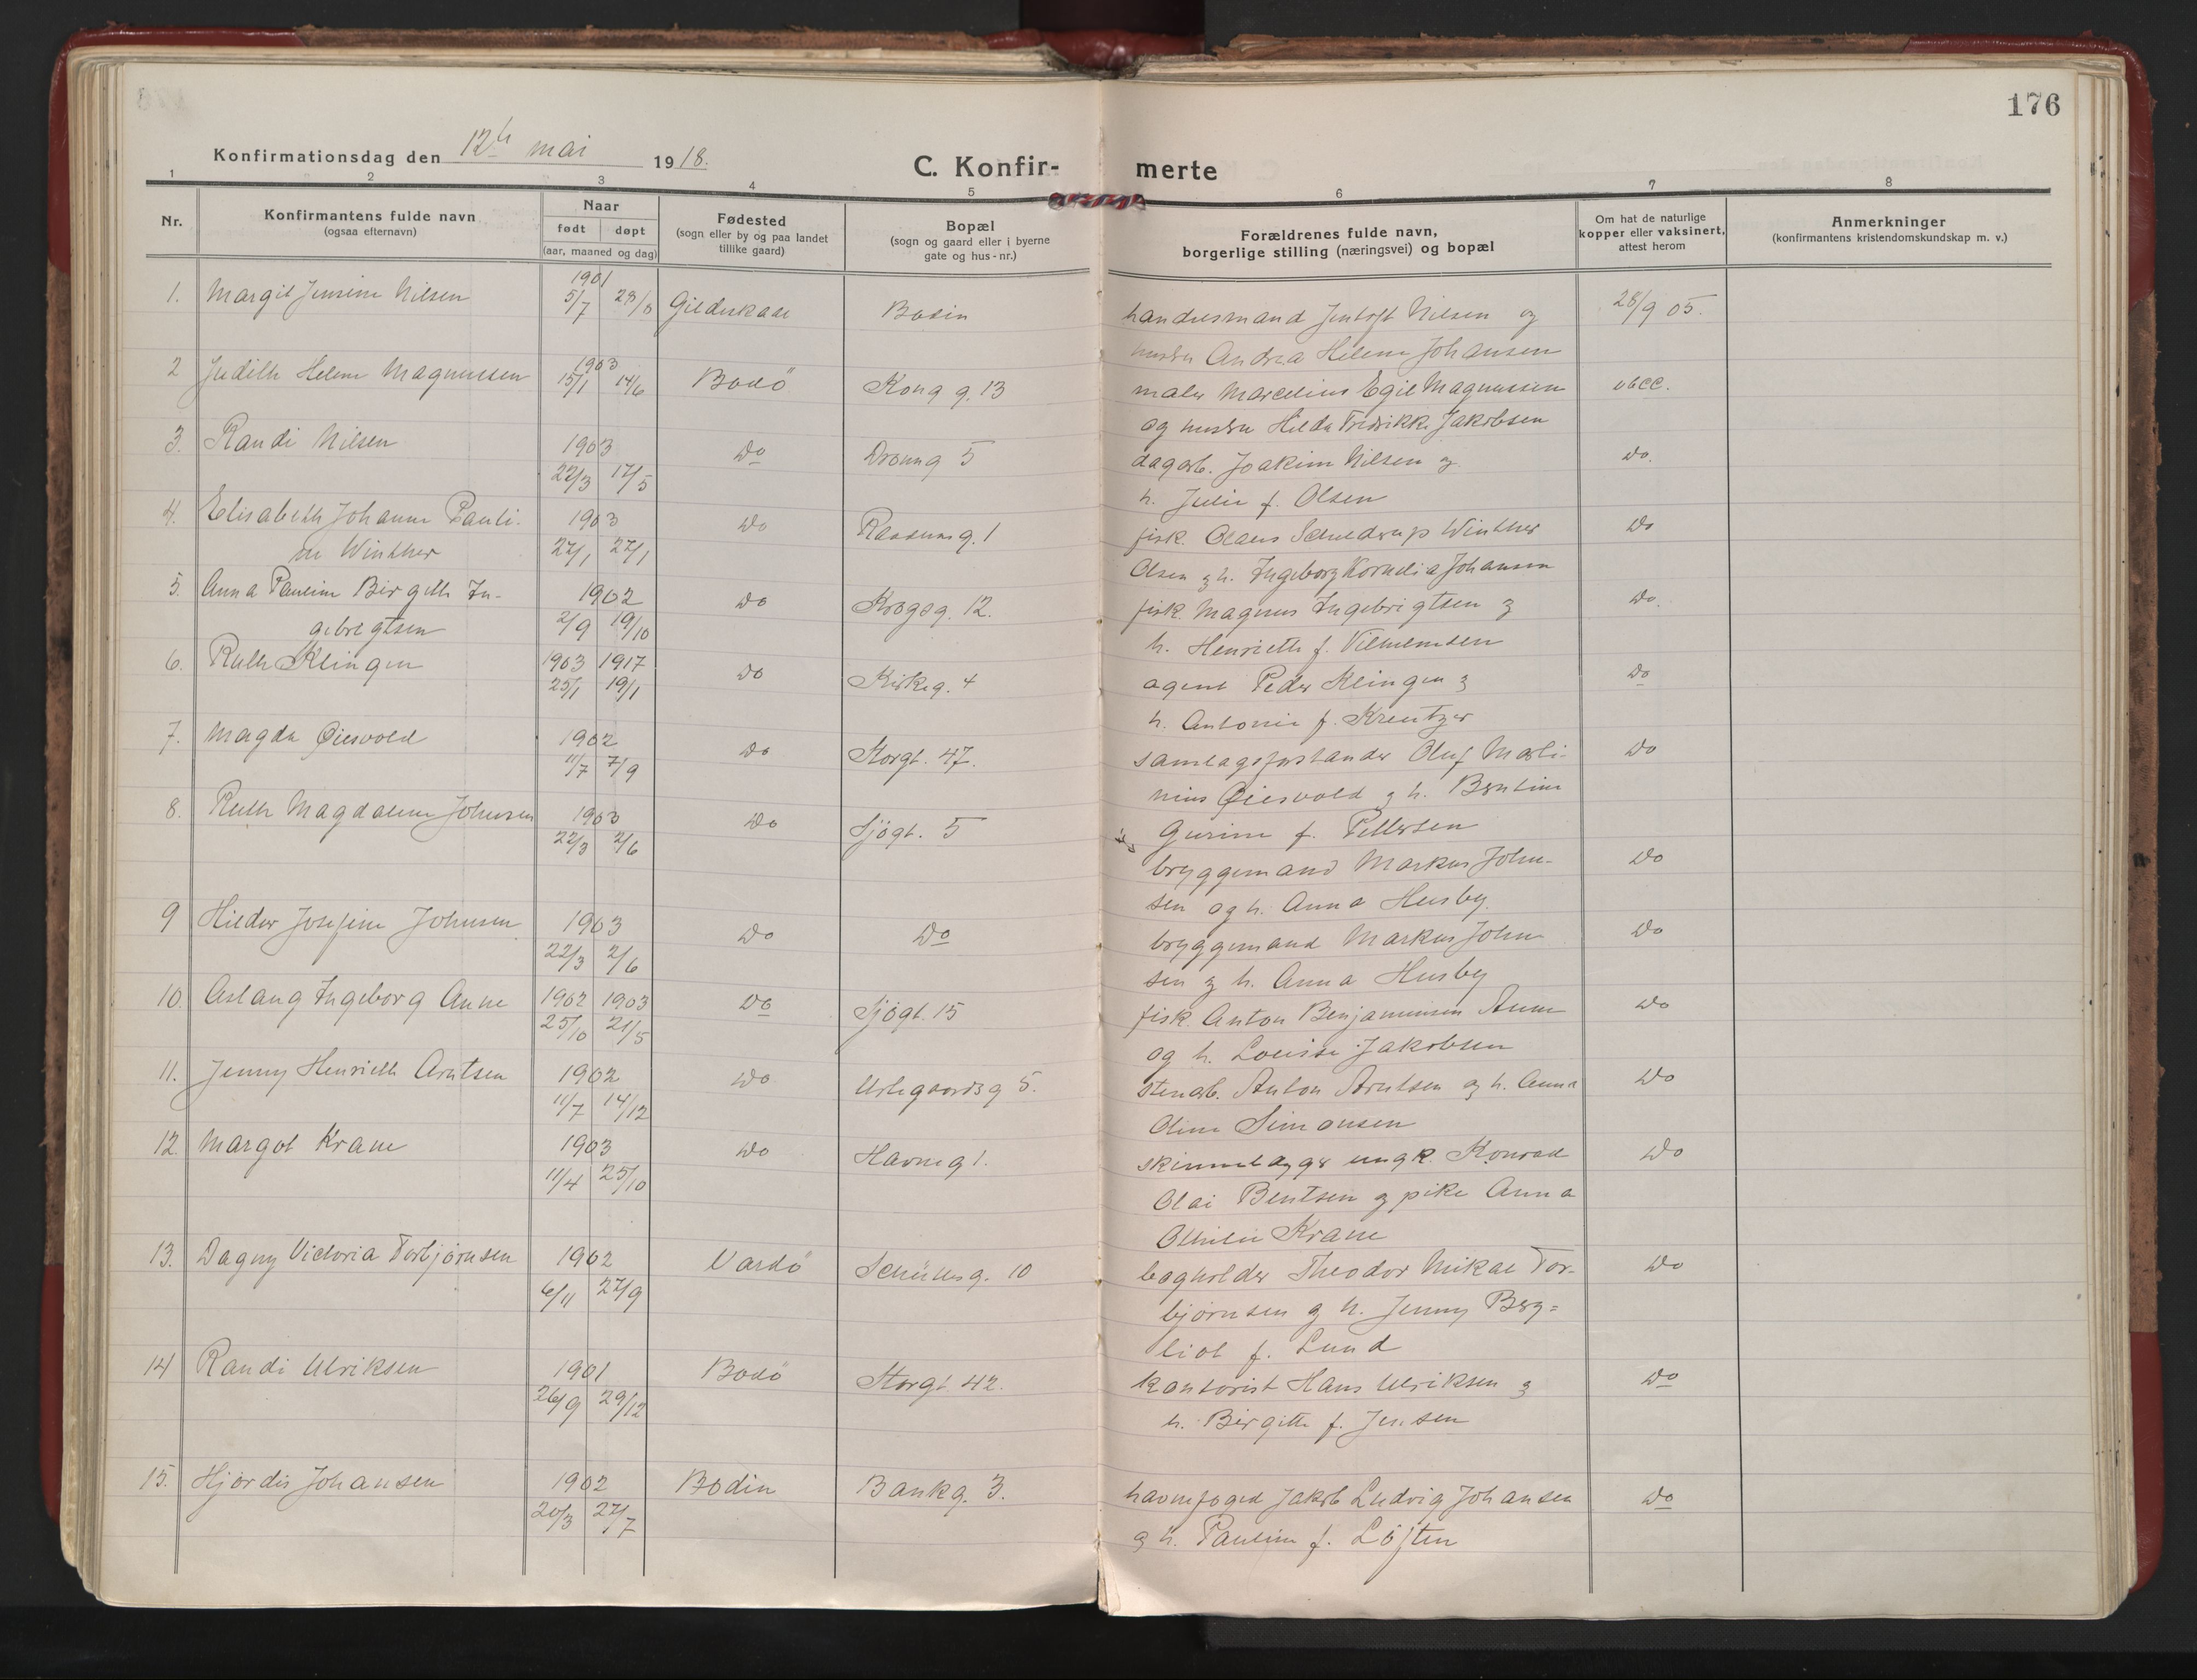 176
Konfirmationsdag den 12te mai 1918.
C. Konfir-merte
1 2 3 4 5 6 7 8
Nr.
Konfirmantens fulde navn
(ogsaa efternavn)
Naar
født døpt
(aar, maaned og dag)
Fødested
(sogn eller by og paa landet
tillike gaard)
Bopæl
(sogn og gaard eller i byerne
gate og hus-nr.)
Forældrenes fulde navn,
borgerlige stilling (næringsvei) og bopæl
Om hat de naturlige
kopper eller vaksinert,
attest herom
Anmerkninger
(konfirmantens kristendomskundskap m. v.)
1. Margit Jensine Nilsen 1901 5/7 28/8 Gildeskaal Bodin handelsmand Jentoft Nilsen og 28/9 05.
hustru Andrea Helene Johansen
2 Judith Helene Magnussen 1903 15/1 14/6 Bodö Kong g. 13 maler Marcelius Egil Magnussen vacc.
og hustru Hilda Fredrikke Jakobsen
3. Randi Nilsen 1903 22/3 17/5 Do Dronn g 5 dagarb. Joakim Nilsen og Do.
h. Julie f. Olsen
4. Elisabeth Johanne Pauli- 1903 Do g. 1 fisk. Olaus Schieldrup Winther Do
ne Winther 27/1 27/1 Olsen og h. Ingeborg Kornelia Johansen
5. Anna Pauline Birgitte In- 1902 Do Krogsg. 12. fisk. Magnus Ingebrigtsen og Do.
gebrigtsen 2/9 19/10 h. Henriette f. Vilhelmsen
6. Ruth Klingen 1903 1917 25/1 19/1 Do Kirkeg. 4 agent Peder Klingen og Do
h. Antonie f. Kreutzer
7. Magda Øiesvold 1902 11/7 7/9 Do Storgt. 47. samlagsforstander Oluf Marti- Do
nius Øiesvold og h. Bentine
Gurine f. Pettersen
8. Ruth Magdalene Johnsen 1903 22/3 2/6 Do Sjøgt. 5 bryggemand Markus John- Do
sen og h. Anna Husby.
9 Hildur Josefine Johnsen 1903 22/3 2/6 Do Do bryggemand Markus John Do
sen og h. Anna Husby
10. Aslaug Ingeborg Aune 1902 1903 25/10 21/5 Do Sjøgt. 15 fisk. Anton Benjaminsen Aune Do
og h. Lovise Jakobsen
11. Jenny Henriette Arntsen 1902 11/7 14/12 Do g 5. stenarb. Anton Arntsen og h. Anna Do
Oline Simonsen
12. Margot Krane 1903 11/4 25/10 Do Havneg 1. ungk. Konrad Do
Olai Bentsen og pike Anna
Othilie Krane
13. Dagny Victoria Torbjørnsen 1902 6/11 27/9 Vardö g. 10 bogholder Theodor Mikal Tor- Do
bjørnsen og h. Jenny Berg=
liot f. Lund
14 Randi Ulriksen 1901 26/9 29/12 Bodö Storgt 42. kontorist Hans Ulriksen og Do
h. Birgitte f. Jensen
15. Hjørdis Johansen 1902 20/3 27/7 Bodin Bankg. 3. havnefoged Jakob Ludvig Johansen Do
og h. Pauline f. Løften